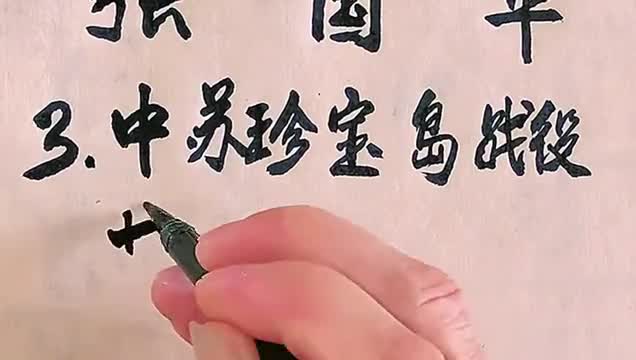 张国华
3.中苏珍宝岛战役